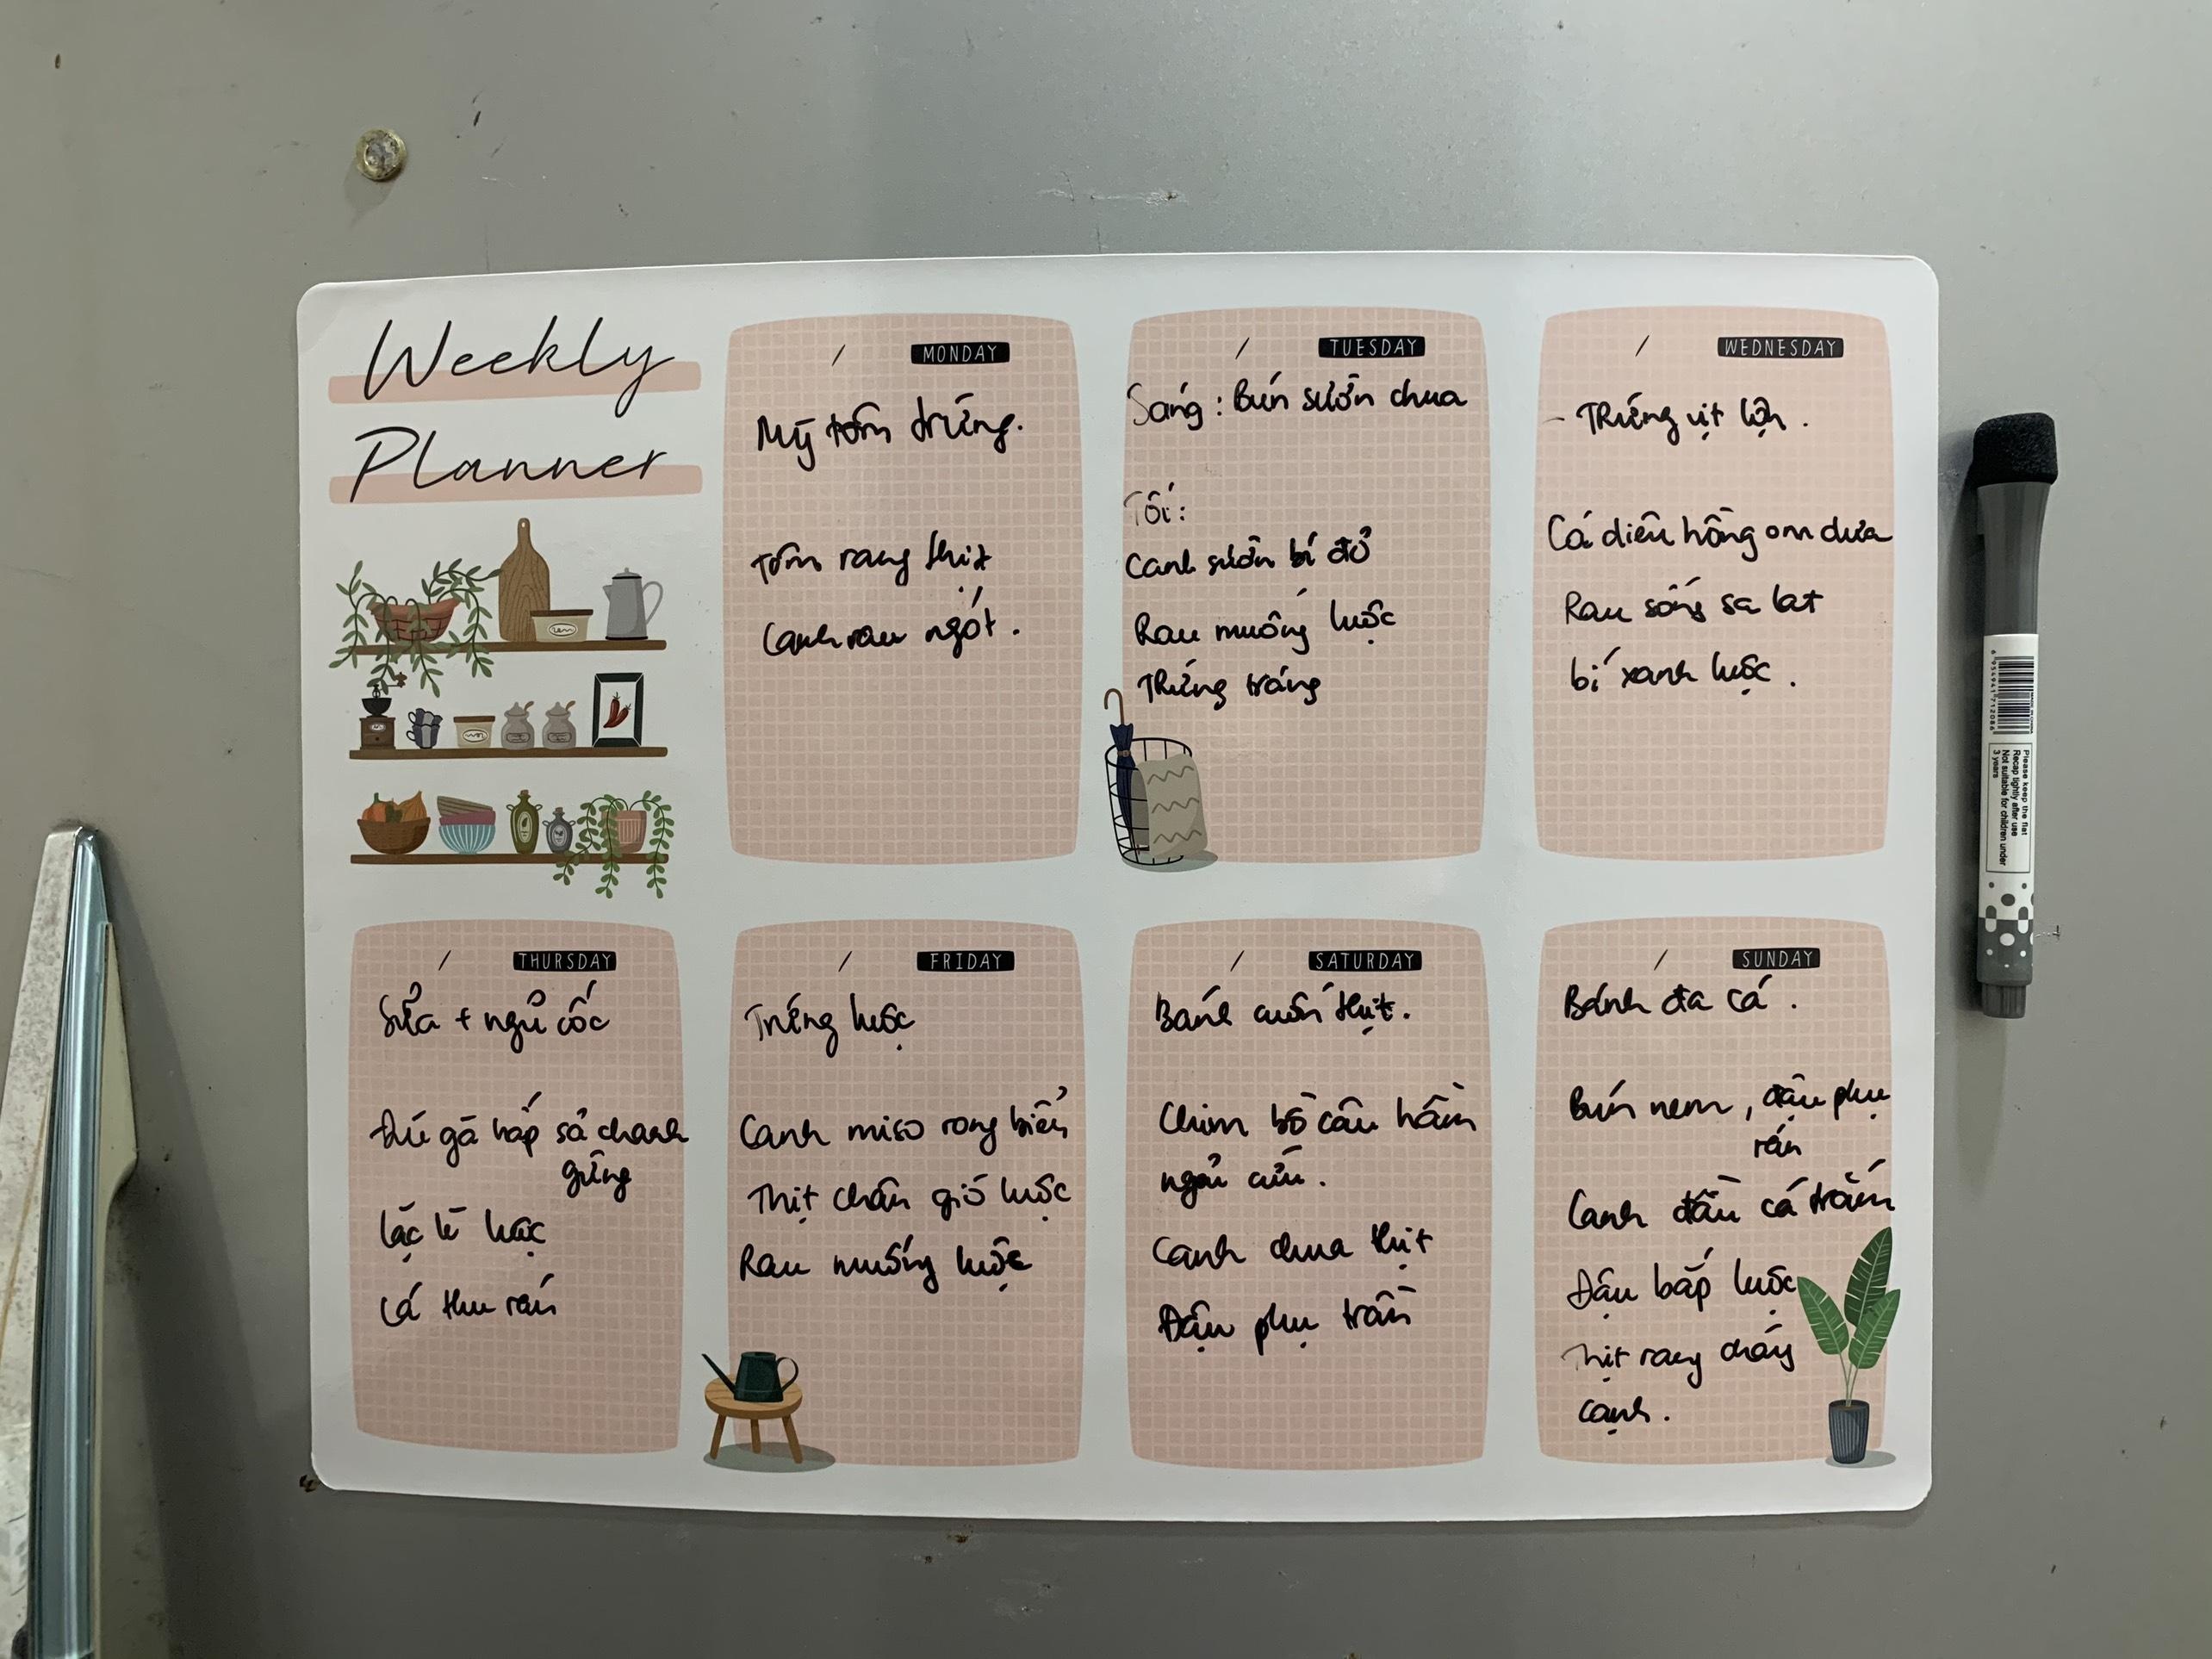 Weekly
Planner
MONDAY
Mỳ tôm trứng.
Tôm rang thịt
Canh rau ngót.
TUESDAY
Sáng: Bún sườn chua
Tối:
Canh sườn bí đỏ
Rau muống luộc
Trứng tráng
WEDNESDAY
- Trứng vịt lộn.
Cá diêu hồng om dưa
Rau sống sa lat
bí xanh luộc.
THURSDAY
Sữa + ngũ cốc
Đùi gà hấp sả chanh
gừng
Lặc lè luộc
Cá thu rán
FRIDAY
Trứng luộc
Canh miso rong biển
Thịt chân giò luộc
Rau muống luộc
SATURDAY
Bánh cuốn thịt.
Chim bồ câu hầm
ngải cứu.
Canh chua thịt
Đậu phụ trần
SUNDAY
Bánh đa cá.
Bún nem, đậu phụ
rán
Canh đầu cá trắm
Đậu bắp luộc
Thịt rang cháy
cạnh.
6954941712086
Please keep the flat
Recap tightly after use
Not suitable for children under
3 years